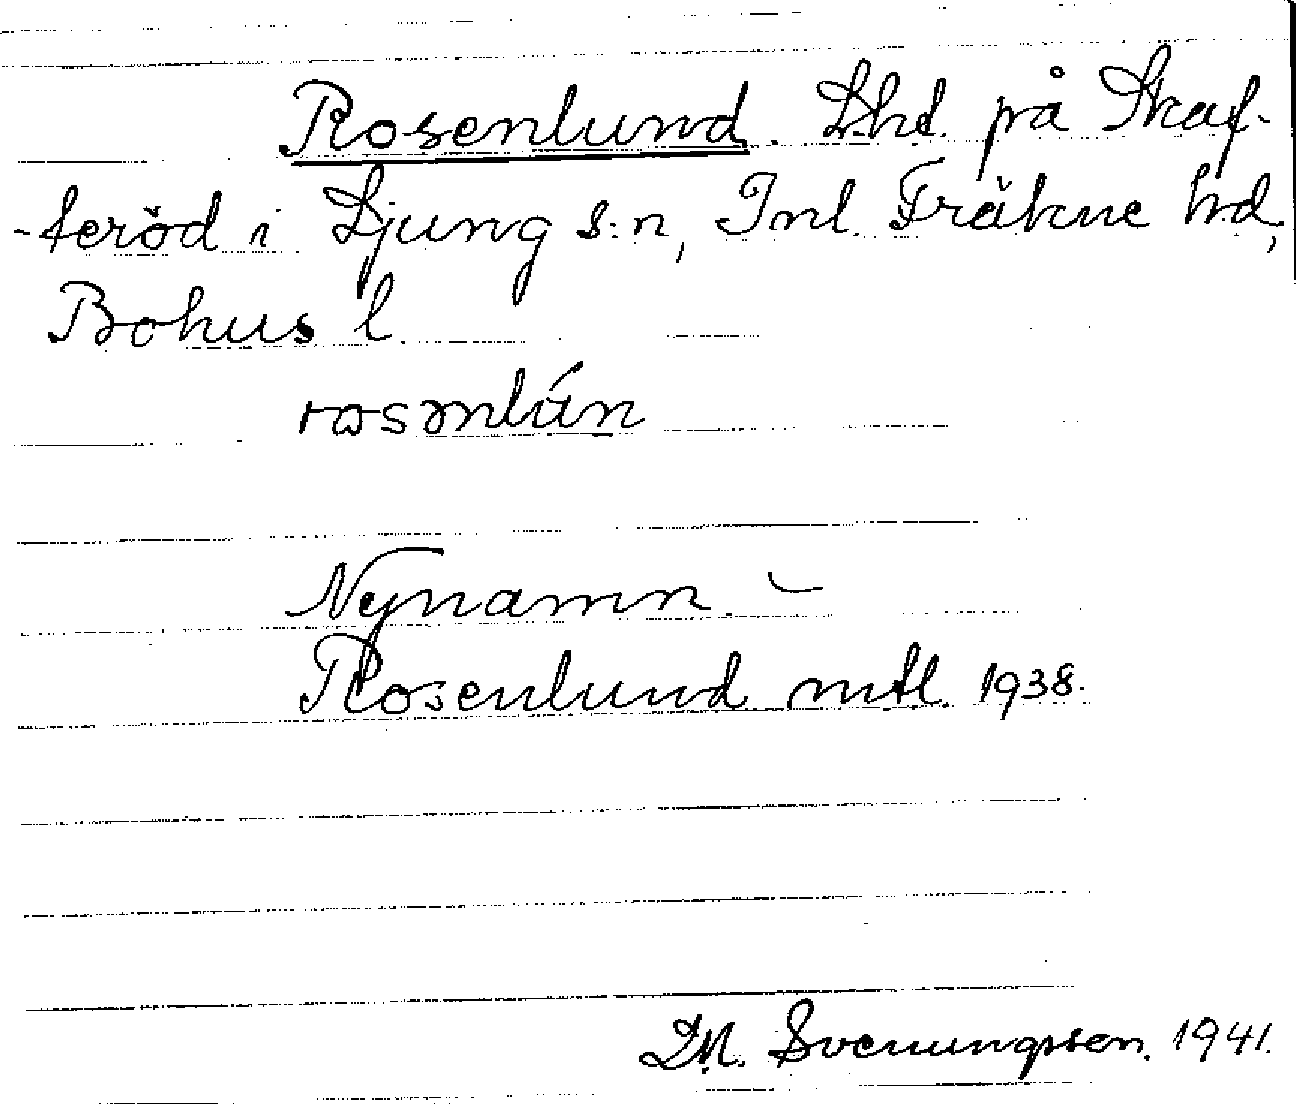 Rosenlund. Lhd. på Skaf-
-teröd i Ljung s:n, Inl. Fräkne hd,
Bohus l.
rosənlún
Nynamn. –
Rosenlund mtl. 1938.
D.M. Svenungsson. 1941.